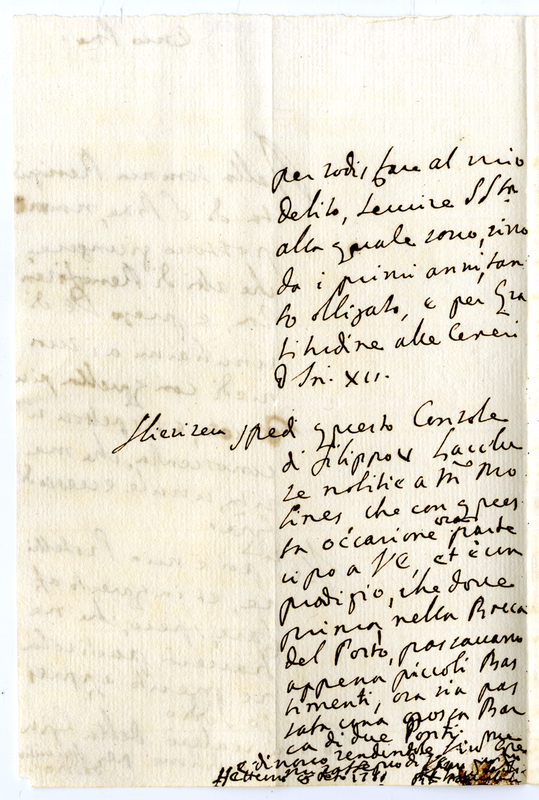 per sodisfare al mio
debito, servire SSta
alla quale sono, sino
da i primi anni, tan
to obligato, e per gra
titudine alle Ceneri
d Inn. XII.
Hierisera spedì questo Console
di Filippo V
ze notitie a Mr Mo
lines che con ques
ta occasione ora parte
cipo a VE, et è un
prodigio, che dove
prima nella Bocca
del Porto, passavano
appena piccoli Bas
timenti, ora sia pas
sata una grossa Bar
ca di due Ponti
di nuovo rendendole
Nettuno